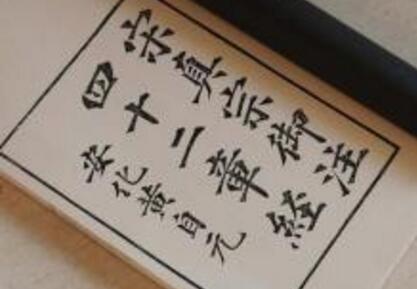 宋真宗御注
四十二章経
安化黄自元